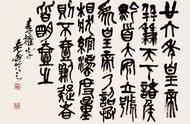 廿六年皇帝盡
并兼天下諸侯
黔首大安立號
為皇帝乃詔丞
相狀綰法度量
則不壹歉疑者
皆明壹之